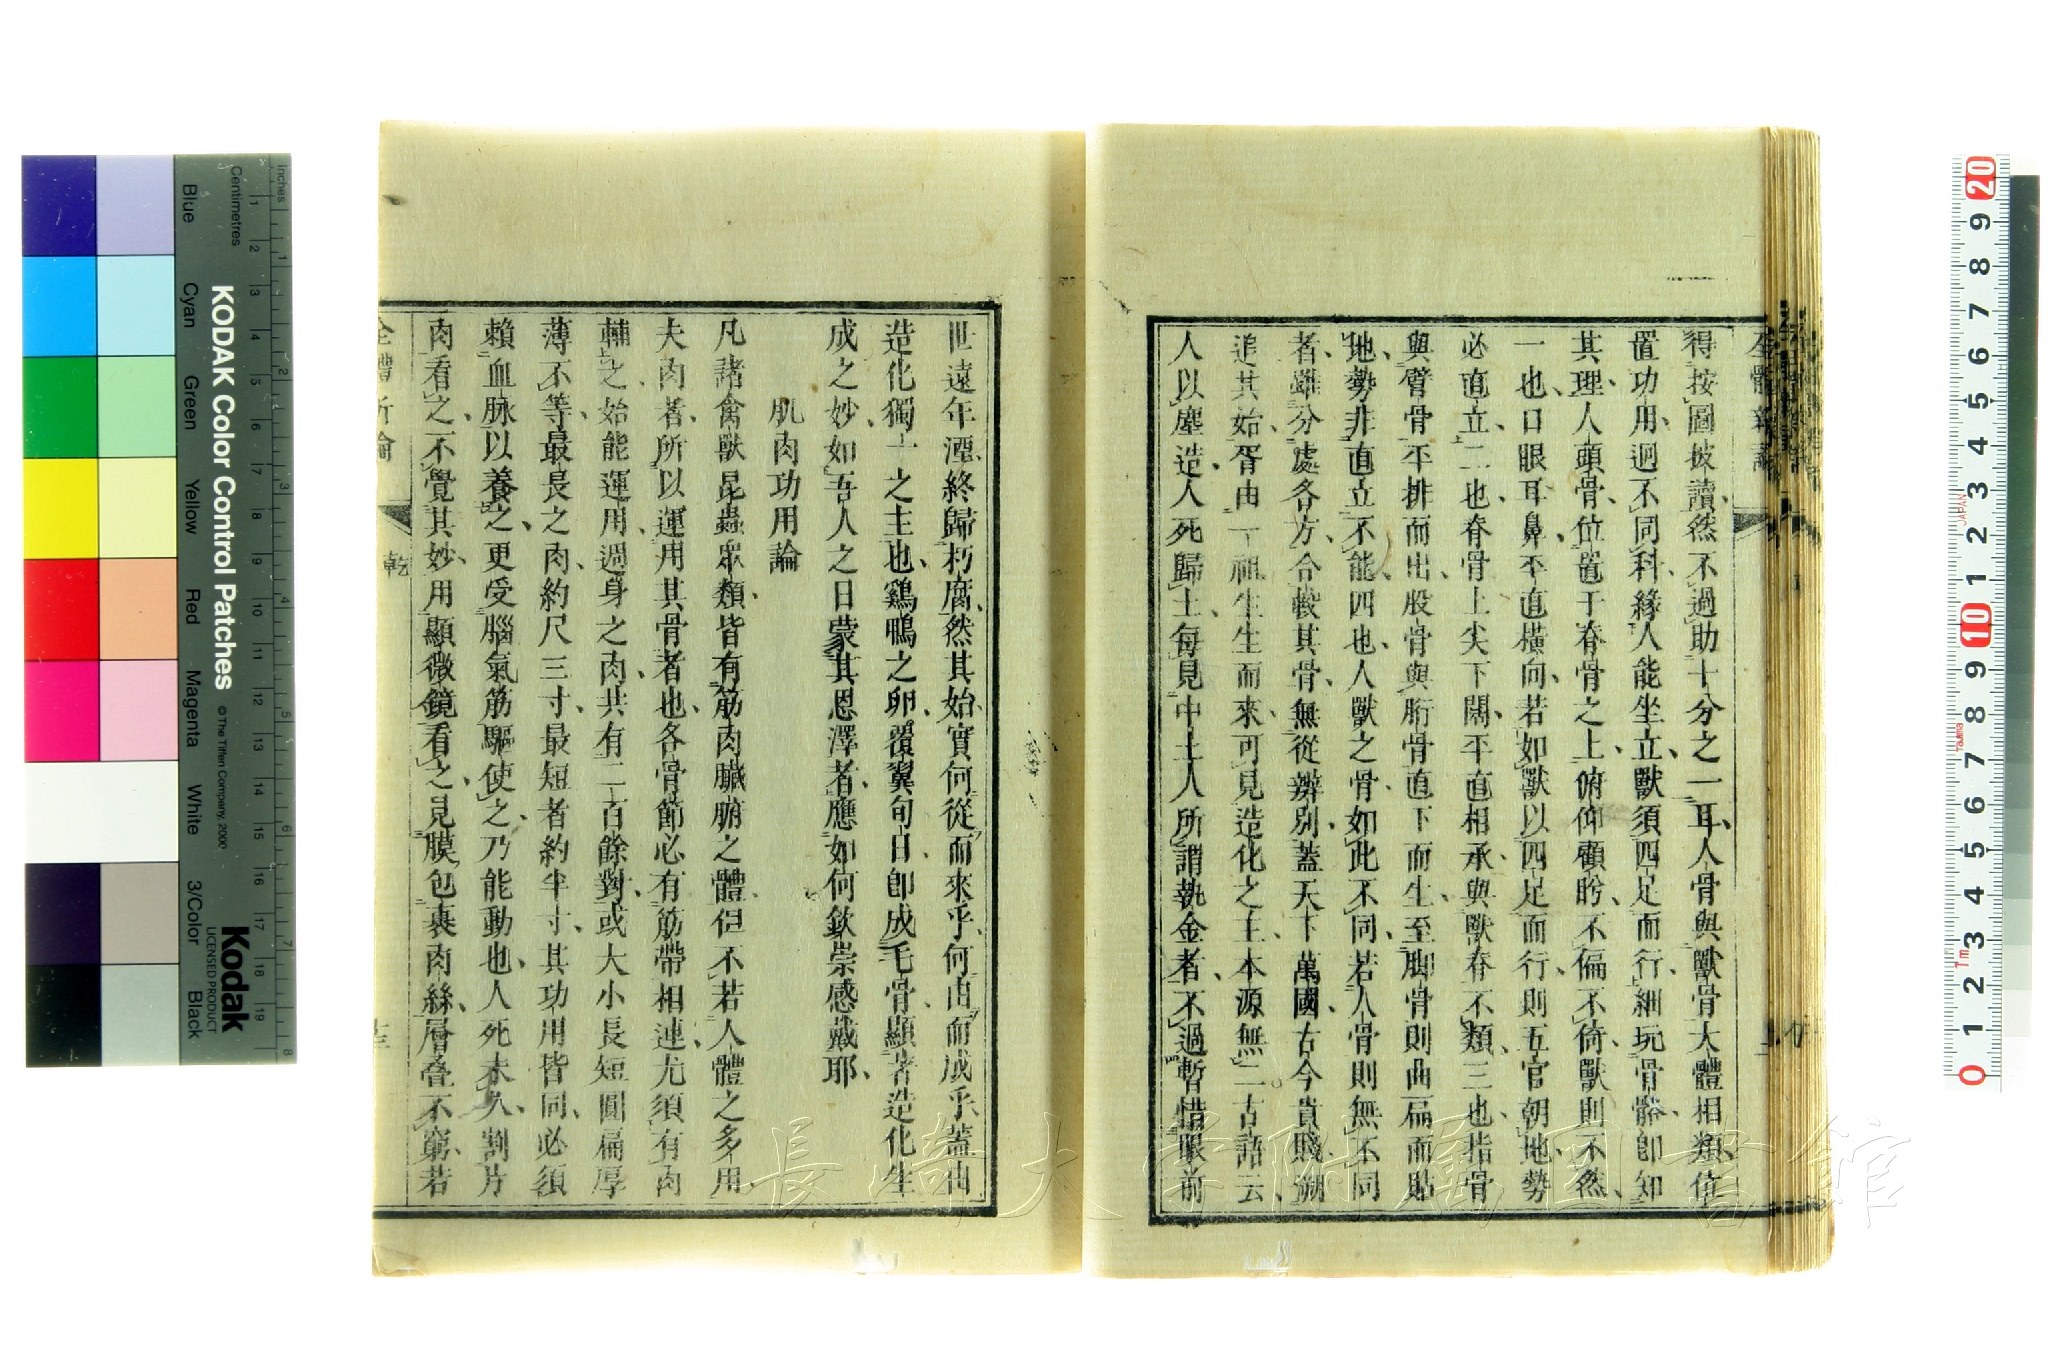 全體新論
得按圖披讀然不過助十分之一耳人骨與獸骨大體相類位
置功用迥不同科緣人能坐立獸須四足而行細玩骨骼卽知
其理人頭骨位置于脊骨之上俯仰顧盻不偏不倚獸則不然
一也口眼耳鼻平直橫向若如獸以四足而行則五官朝地勢
必直立二也脊骨上尖下闊平直相承與獸脊不類三也指骨
與臂骨平排而出股骨與胻骨直下而生至脚骨則曲扁而貼
地勢非直立不能四也人獸之骨如此不同若人骨則無不同
者雖分處各方合較其骨無從辨別蓋天下萬國古今貴賤溯
追其始胥由一祖生生而來可見造化之主本源無二古語云
人以塵造人死歸土每見中土人所謂執金者不過暫惜眼前
世遠年湮終歸朽腐然其始實何從而來乎何由而成乎蓋由
造化獨一之主也鷄鴨之卵覆翼旬日卽成毛骨顯著造化生
成之妙如吾人之日蒙其恩澤者應如何欽崇感戴耶
肌肉功用論
凡諸禽獸昆蟲衆類皆有筋肉臟腑之體但不若人體之多用
夫肉者所以運用其骨者也各骨節必有筋帶相連尤須有肉
輔之始能運用週身之肉共有二百餘對或大小長短圓扁厚
薄不等最長之肉約尺三寸最短者約半寸其功用皆同必須
賴血脉以養之更受腦氣筋驅使之乃能動也人死未久割片
肉看之不覺其妙用顯微鏡看之見膜包裹肉絲層叠不窮若
全體新論
乾
Centimetres
inches
KODAK Color Control Patches
© The Tiffen Company, 2000
Kodak
LICENSED PRODUCT
Blue
Cyan
Green
Yellow
Red
Magenta
White
3/Color
Black
長崎大学附属図書館
JAPAN